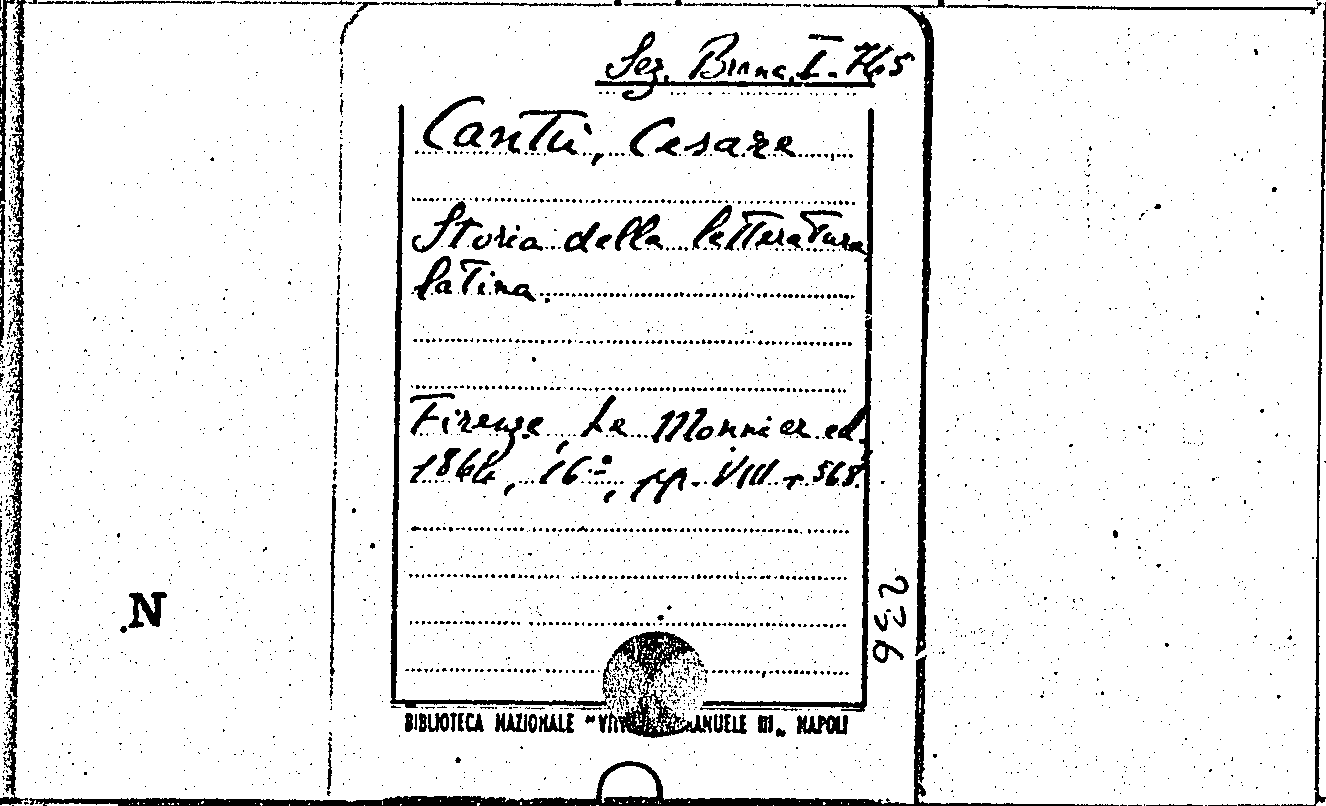 Sez. Branc. I. 765
Cantù, Cesare
Storia della letteratura
latina.
Firenze, Le Monnier ed.
1864, 16º, pp. VIII + 568.
236
N
BIBLIOTECA NAZIONALE "VITT ANUELE III„ NAPOLI